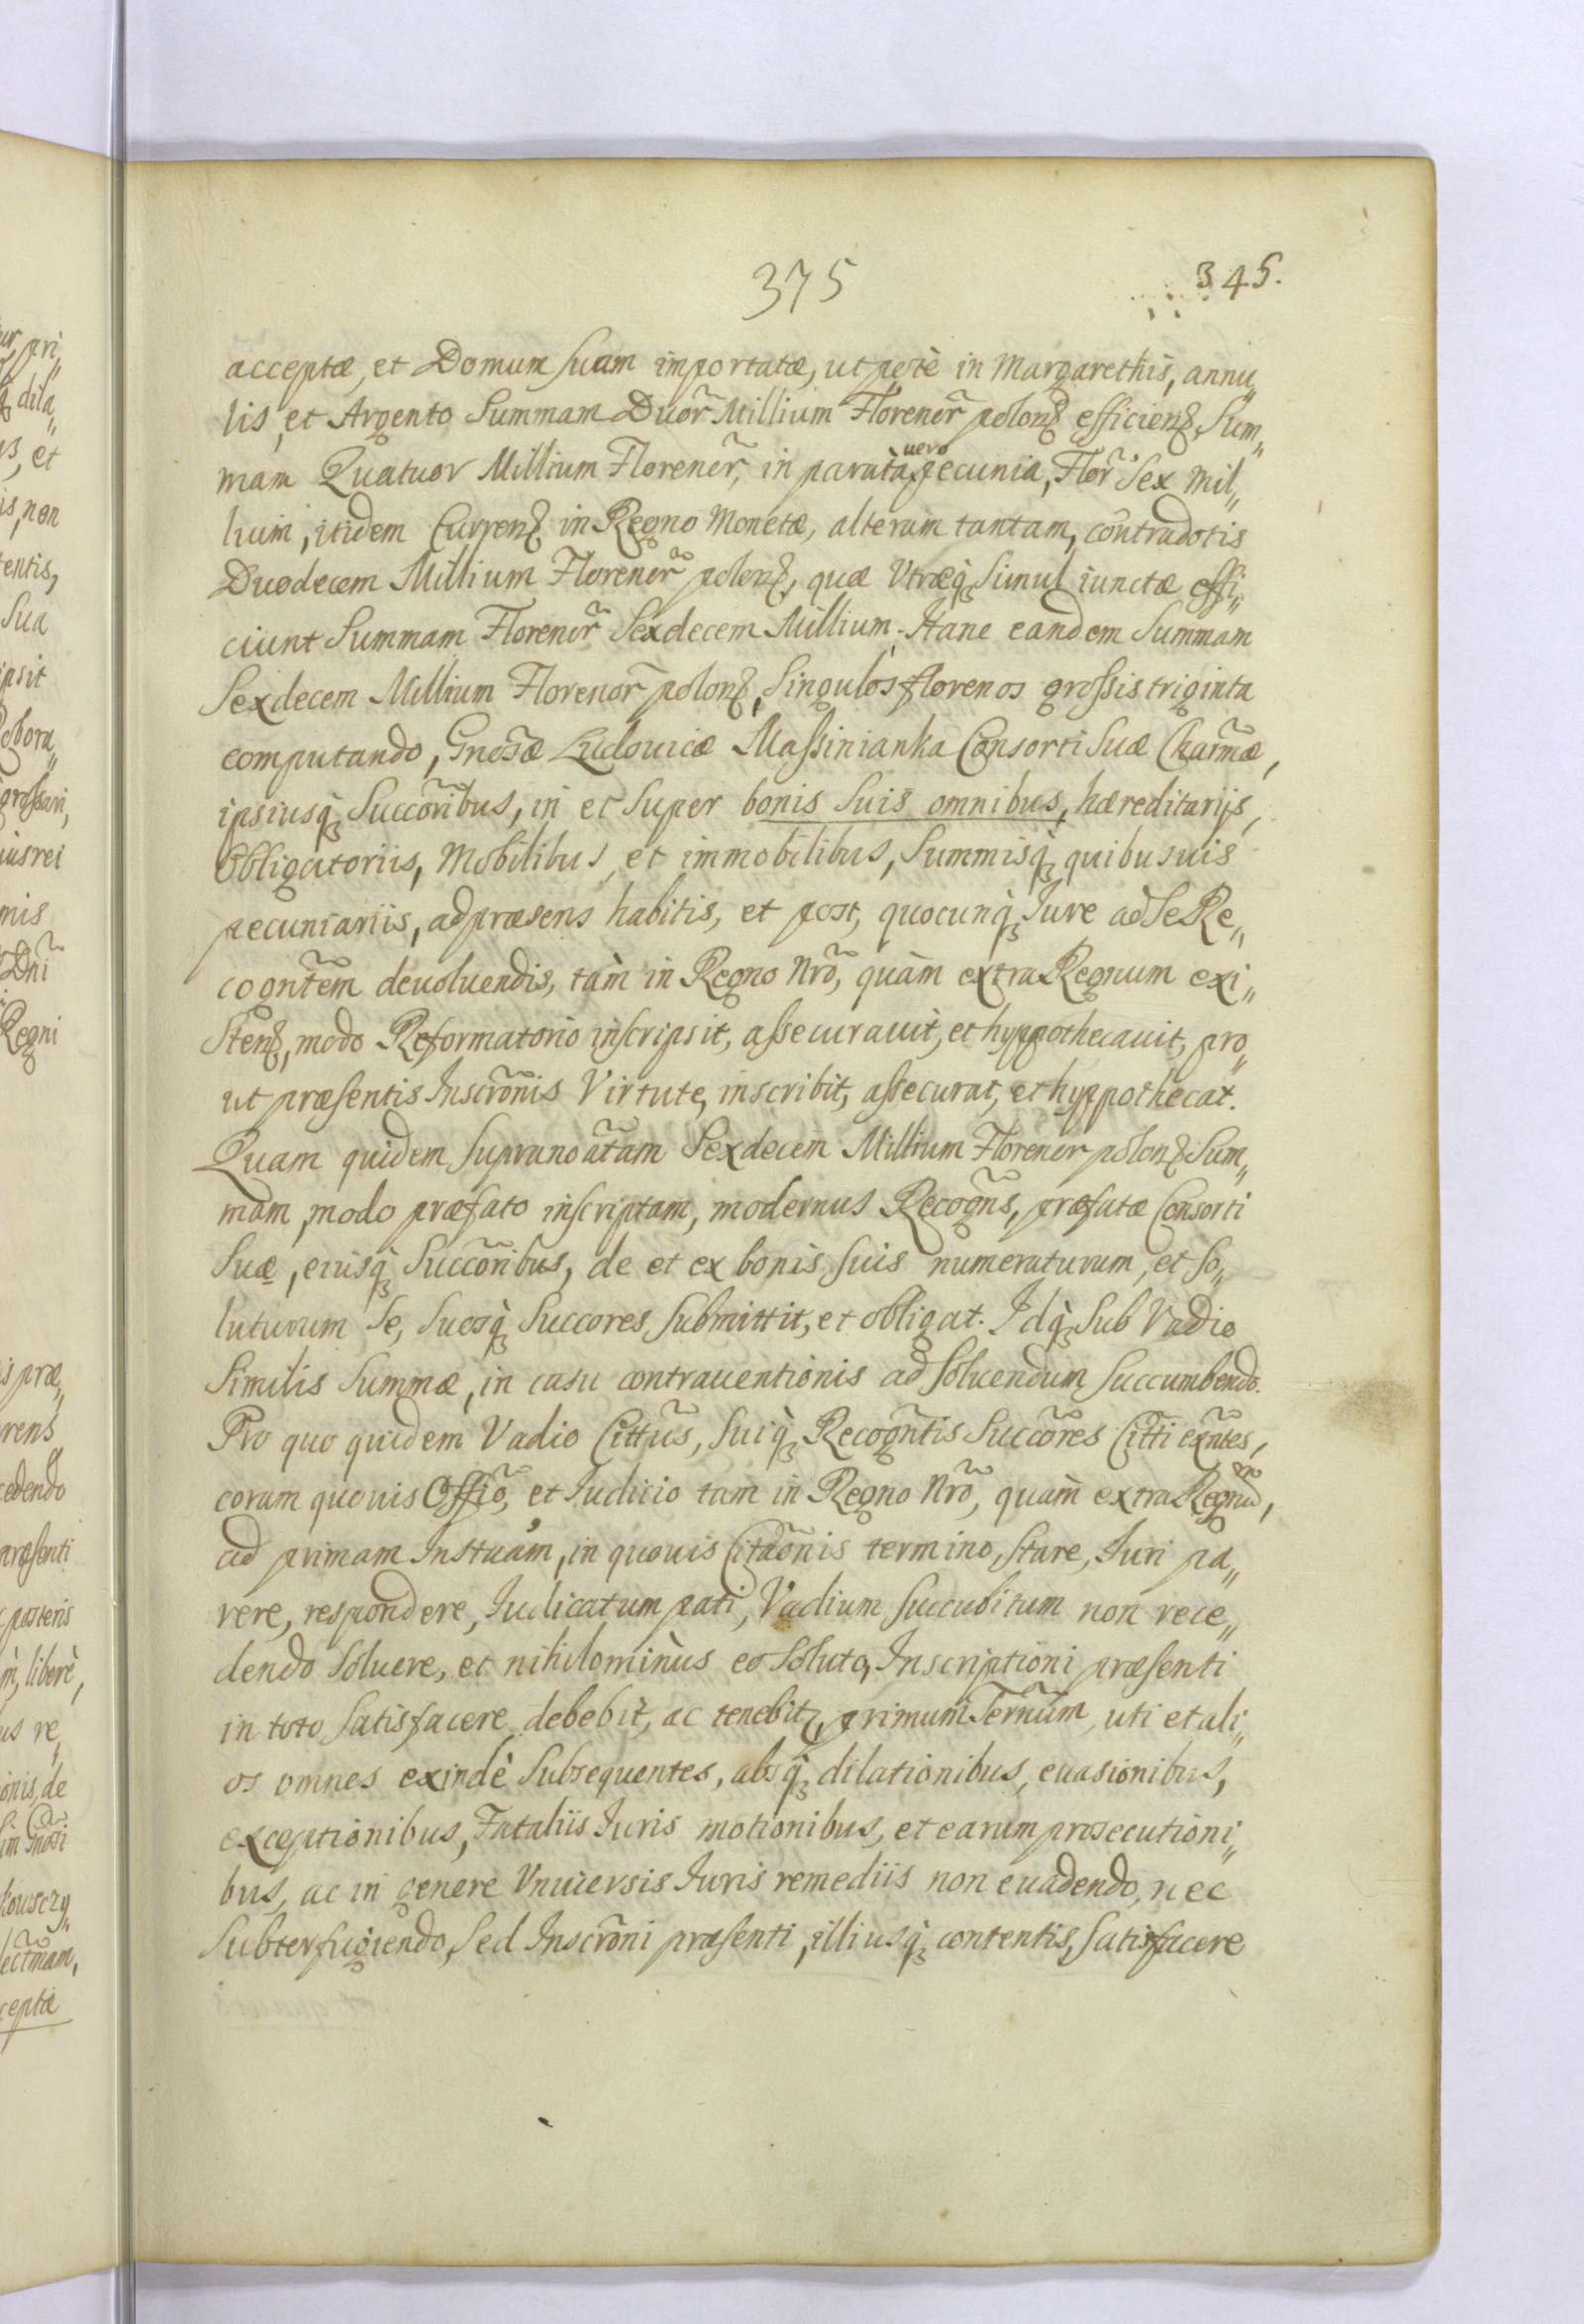 375
345.
acceptæ, et Domum suam importatæ, ut potè in Margarethis, annu„
lis, et Argento Summam Duor̃ Millium Florenor̃ polonꝫ efficienꝫ, Sum„
mam Quatuor Millium Florenor̃, in paratà uero pecunia, Flor̃ Sex Mil„
lium, itidem Currenꝫ in Regno Monetæ, alteram tantam, contradotis
Duodecem Millium Florenor̃ polonꝫ, quæ Vtræq̀ꝫ Simul iunctæ effi„
ciunt Summam Florenor̃ Sexdecem Millium. Hanc eandem Summam
Sexdecem Millium Florenor̃ polonꝫ, Singulos florenos grossis triginta
computando, Gnosæ̃ Ludouicæ Massinianka Consorti Suæ Charm̃æ,
ipsiusq̀ꝫ Succorĩbus, in et Super bonis Suis omnibus, hæreditarijs,
Obligatoriis, Mobilibus, et immobilibus, Summisq̀ꝫ quibusuis
pecuniariis, ad præsens habitis, et post, quocunq̀ꝫ Iure ad Se Re„
cogntẽm deuoluendis, tàm in Regno Nrõ, quàm extra Regnum exi„
Stenꝫ, modo Reformatorio inscripsit, assecurauit, et hyppothecauit, pro„
ut præsentis Inscrõnis Virtute, inscribit, assecurat, et hyppothecat.
Quam quidem Supranoatãm Sexdecem Millium Florenor polonꝫ Sum„
mam, modo præfato inscriptam, modernus Recogñs, præfatæ Consorti
Suæ, eiusq̀ꝫ Succorĩbus, de et ex bonis suis numeraturum, et So„
luturum Se, Suosq̀ꝫ Succores Submittit, et obligat. Idq̀ꝫ Sub Vadio
Similis Summæ, in casu contrauentionis ad Soluendum Succumbendo.
Pro quo quidem Vadio Cittũs, Suiq̀ꝫ Recogñtis Succorẽs Cittĩ exñtes,
coram quouis Offiõ, et Iudicio tam in Regno Nrõ, quàm extra Regnũ,
ad primam Instuãm, in quouis Citaõnis termino, Stare, Iuri pa„
rere, respondere, Iudicatum pati, Vadium Succubitum non rece„
dendo Soluere, et nihilominùs eo Soluto, Inscriptioni præsenti
in toto Satisfacere, debebit, ac tenebitꝫ, primum Ternũm, uti et ali„
os omnes exindè Subsequentes, absq̀ꝫ dilationibus, euasionibus,
exceptionibus, Fataliis Iuris motionibus, et earum prosecutioni„
bus, ac in genere Vniuersis Iuris remediis non euadendo, nec
Subterfugiendo, Sed Inscrõni præsenti, illiusq̀ꝫ contentis, Satisfacere